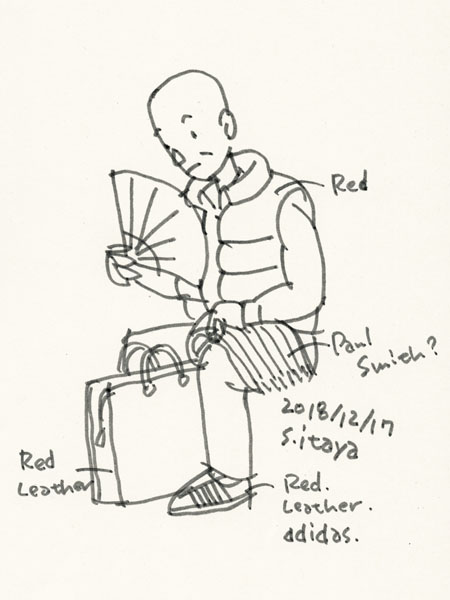 Red
Paul
Smith?
2018/12/17
S.itaya
Red
Leather
Red.
Leather.
adidas.